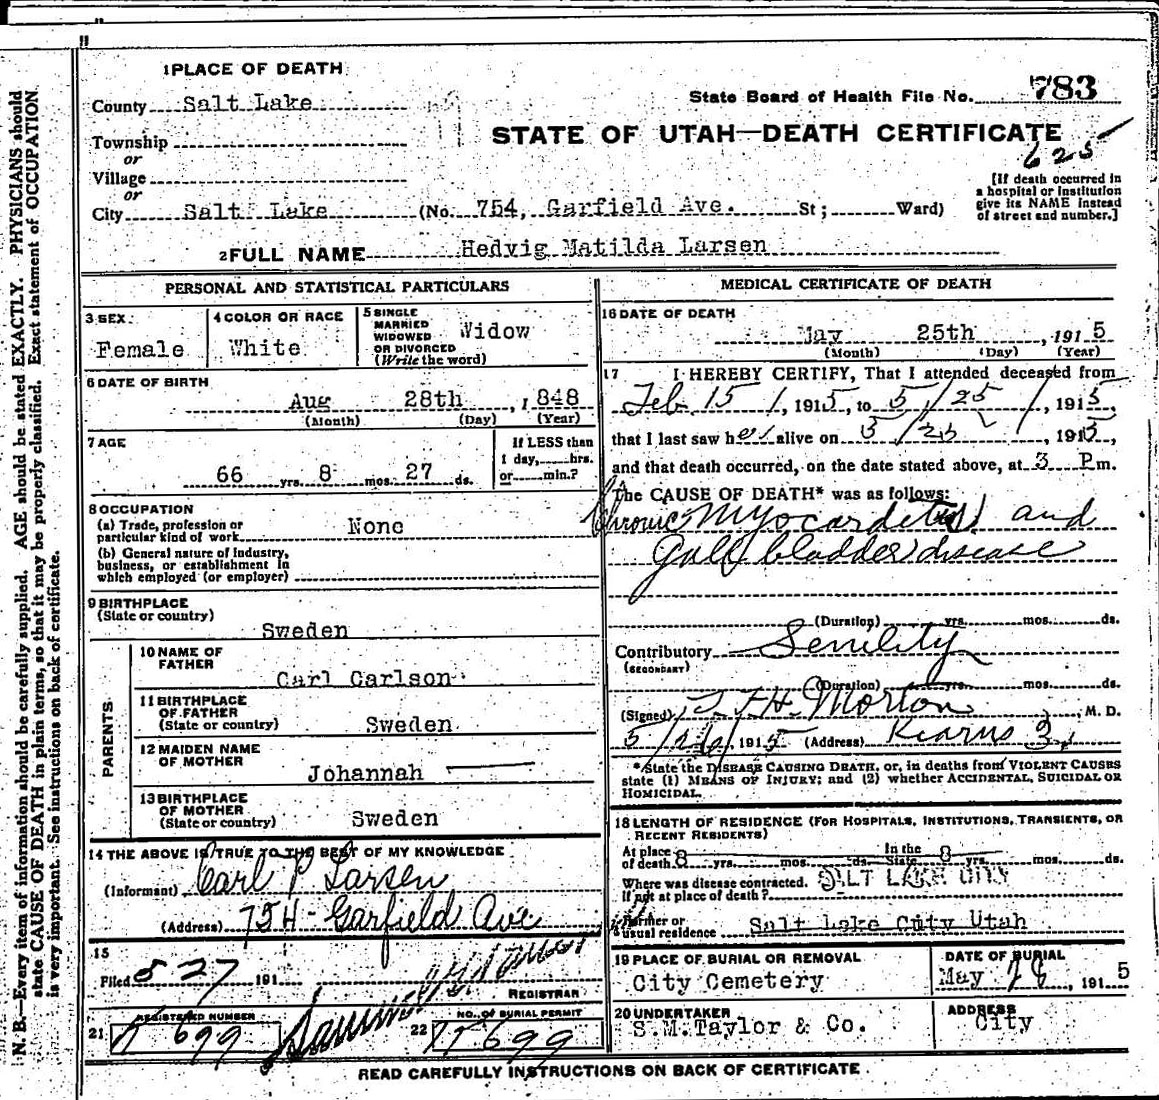 1 PLACE OF DEATH
County Salt Lake
State Board of Health File No. 783
Township
or
Village
or
STATE OF UTAH—DEATH CERTIFICATE
625
[If death occurred in
a hospital or institution
give its NAME instead
of street and number.]
City Salt Lake (No. 754, Garfield Ave. St; Ward)
2 FULL NAME Hedvig Matilda Larsen
PERSONAL AND STATISTICAL PARTICULARS
3 SEX
Female
4 COLOR OR RACE
White
5 SINGLE
MARRIED
WIDOWED
OR DIVORCED
(Write the word)
Widow
6 DATE OF BIRTH
Aug 28th , 1848
(Month) (Day) (Year)
7 AGE
66 yrs. 8 mos. 27 ds.
If LESS than
1 day, hrs.
or min.?
8 OCCUPATION
(a) Trade, profession or
particular kind of work None
(b) General nature of Industry,
business, or establishment in
which employed (or employer)
9 BIRTHPLACE
(State or country)
Sweden
PARENTS
10 NAME OF
FATHER
Carl Carlson
11 BIRTHPLACE
OF FATHER
(State or country) Sweden
12 MAIDEN NAME
OF MOTHER
Johannah
13 BIRTHPLACE
OF MOTHER
(State or country) Sweden
14 THE ABOVE IS TRUE TO THE BEST OF MY KNOWLEDGE
(Informant) Carl P Larsen
(Address) 754 - Garfield Ave
15
Filed 5 27 191
REGISTRAR
REGISTERED NUMBER
21 699
NO. OF BURIAL PERMIT
22 699
MEDICAL CERTIFICATE OF DEATH
16 DATE OF DEATH
May 25th , 1915
(Month) (Day) (Year)
17 I HEREBY CERTIFY, That I attended deceased from
Feb 15 , 1915, to 5/25/ , 1915,
that I last saw her alive on 5/25 , 1915,
and that death occurred, on the date stated above, at 3 P.m.
The CAUSE OF DEATH* was as follows:
Chronic Myocarditis and
Gall bladder disease
(Duration) yrs. mos. ds.
Contributory Senility
(SECONDARY)
(Duration) yrs. mos. ds.
(Signed) Morton , M. D.
5/26, 1915 (Address) Kearns
*State the DISEASE CAUSING DEATH, or, in deaths from VIOLENT CAUSES
state (1) MEANS OF INJURY; and (2) whether ACCIDENTAL, SUICIDAL OR
HOMICIDAL.
18 LENGTH OF RESIDENCE (FOR HOSPITALS, INSTITUTIONS, TRANSIENTS, OR
RECENT RESIDENTS)
At place of death 8 yrs. mos. ds. In the State 8 yrs. mos. ds.
Where was disease contracted. SALT LAKE CITY
If not at place of death?
Former or
usual residence Salt Lake City Utah
19 PLACE OF BURIAL OR REMOVAL
City Cemetery
DATE OF BURIAL
May 28, 1915
20 UNDERTAKER
S.M.Taylor & Co.
ADDRESS
City
READ CAREFULLY INSTRUCTIONS ON BACK OF CERTIFICATE.
N. B.—Every item of information should be carefully supplied. AGE should be stated EXACTLY. PHYSICIANS should
state CAUSE OF DEATH in plain terms, so that it may be properly classified. Exact statement of OCCUPATION
is very important. See instructions on back of certificate.